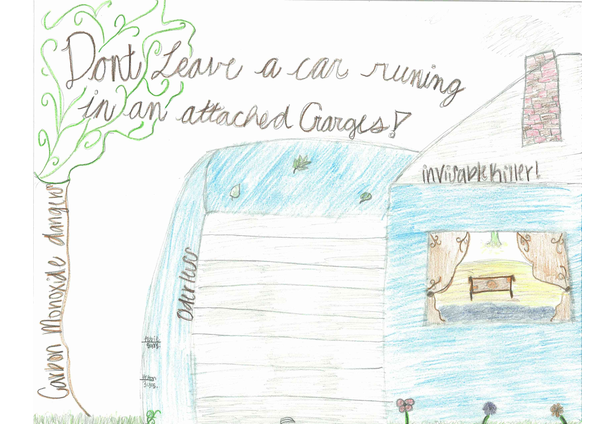 Dont Leave a car runing
in an attached Garges!
invisablekiller!
Oderless
Carbon Monoxide danger